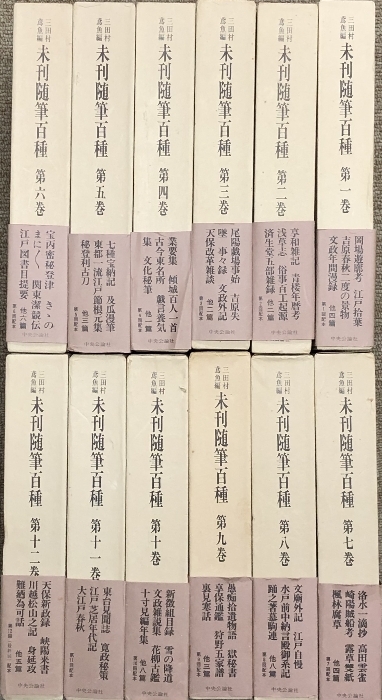 三田村
鳶魚編
未刊随筆百種 第一巻
岡場遊廓考 江戸拾葉
吉原春秋二度の景物
文政年間漫録 他四篇
中央公論社
三田村
鳶魚編
未刊随筆百種 第二巻
享和雑記 青楼年暦考
浅草志 俗事百工起源
済生堂五部雑録 他二篇
中央公論社
三田村
鳶魚編
未刊随筆百種 第三巻
尾陽戯場事始 吉原失
墜 事々録 文政外記
天保改革雑談 他二篇
中央公論社
三田村
鳶魚編
未刊随筆百種 第四巻
業要集 傾城百人一首
古今東名所 戯言養気
集 文化秘筆 他一篇
中央公論社
三田村
鳶魚編
未刊随筆百種 第五巻
七種宝納記 及瓜漫筆
東都一流江戸節根元集
秘登利古刀 他三篇
中央公論社
三田村
鳶魚編
未刊随筆百種 第六巻
宝丙密秘登津 きゝの
まに〱 関東潔競伝
江戸図書目提要 他六篇
中央公論社
三田村
鳶魚編
未刊随筆百種 第七巻
洛水一滴抄 高田雲雀
崎陽賎船考 露草雙紙
楓林腐草 他四篇
中央公論社
三田村
鳶魚編
未刊随筆百種 第八巻
文廟外記 江戸自慢
水戸前中納言殿御系記
踊之著慕駒連 他八篇
中央公論社
三田村
鳶魚編
未刊随筆百種 第九巻
愚痴拾遺物語 嶽秘書
享保通鑑 狩野五家譜
裏見寒話
中央公論社
三田村
鳶魚編
未刊随筆百種 第十巻
新徴組目録 雪の降道
文政雑説集 花柳古鑑
十寸見編年集 他八篇
中央公論社
三田村
鳶魚編
未刊随筆百種 第十一巻
東台見聞誌 寛政秘策
江戸芝居年代記
大江戸春秋
中央公論社
三田村
鳶魚編
未刊随筆百種 第十二巻
天保新政録 峡陽来書
川越松山之記 身延攻
難廼為可話
中央公論社